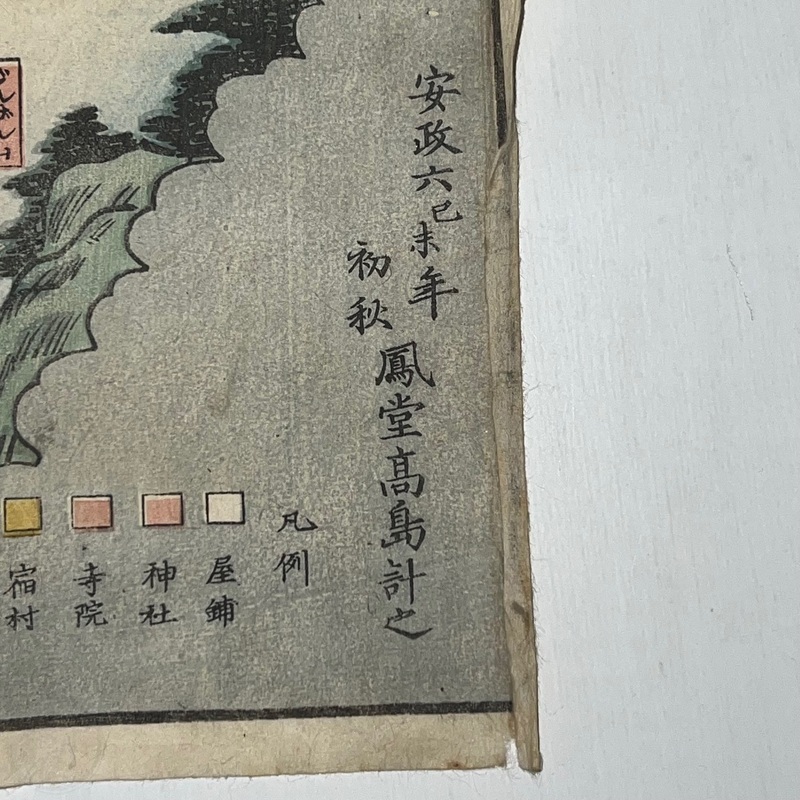 安政六己未年
初秋
鳳堂高島計之
凡例
屋鋪
神社
寺院
宿村